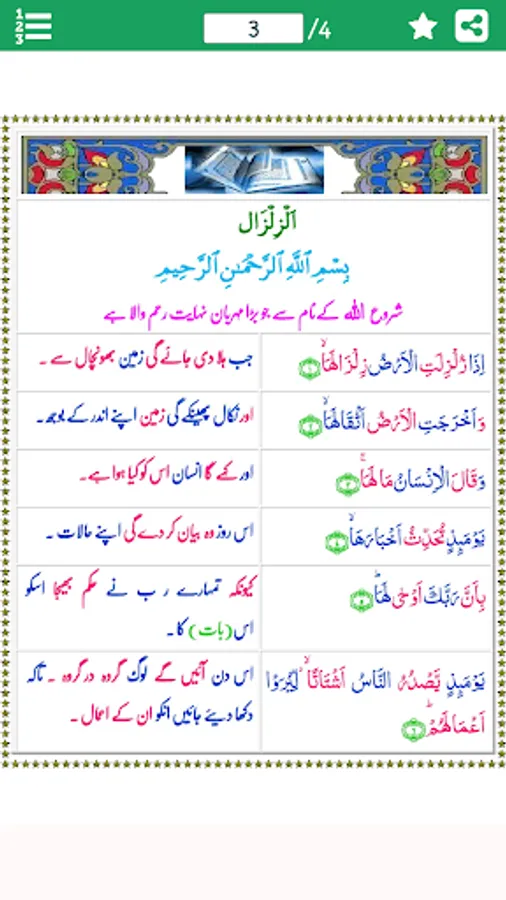 1
2
3
3 /4
اَلْزِلْزَال
بِسْمِ اللَّهِ الرَّحْمَٰنِ الرَّحِيمِ
شروع اللہ کے نام سے جو بڑا مہربان نہایت رحم والا ہے
اِذَا زُلْزِلَتِ الْاَرْضُ زِلْزَالَهَاۙ ۱
جب ہلا دی جائے گی زمین بھونچال سے ۔
وَاَخْرَجَتِ الْاَرْضُ اَثْقَالَهَاۙ ۲
اور نکال پھینکے گی زمین اپنے اندر کے بوجھ۔
وَقَالَ الْاِنْسَانُ مَا لَهَاۚ ۳
اور کہے گا انسان اس کو کیا ہوا ہے۔
يَوْمَىِٕذٍ تُحَدِّثُ اَخْبَارَهَاۙ ۴
اس روز وہ بیان کر دے گی اپنے حالات ۔
بِاَنَّ رَبَّكَ اَوْحٰى لَهَاؕ ۵
کیونکہ تمہارے رب نے حکم بھیجا اسکو
اس (بات) کا۔
يَوْمَىِٕذٍ يَّصْدُرُ النَّاسُ اَشْتَاتًا ۙ لِّيُرَوْا
اَعْمَالَهُمْؕ ۶
اس دن آئیں گے لوگ گروہ در گروہ ۔ تاکہ
دکھا دیئے جائیں انکو ان کے اعمال ۔